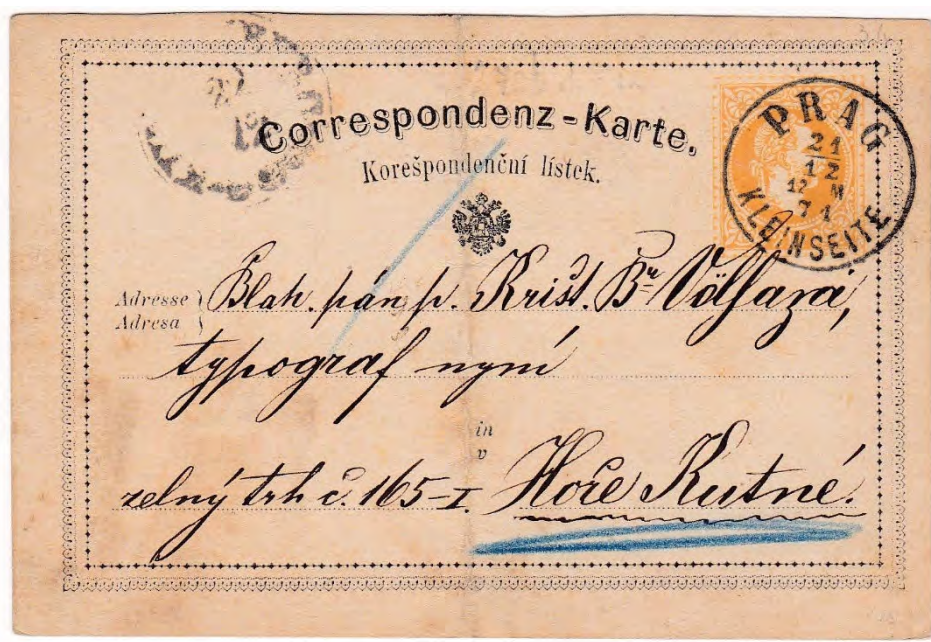 Correspondenz-Karte.
Korešpondenční lístek.
PRAG
21
12
12 M
71
KLEINSEITE
Adresse
Adresa
Blah. pán p. Krist. Br
typograf nyní
in
v
zelný trh č. 165-I. Hoře Kutné.